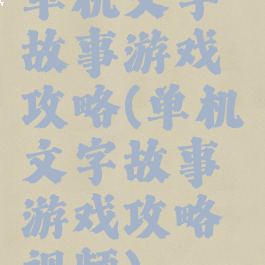 单机文字
故事游戏
攻略(单机
文字故事
游戏攻略
视频)